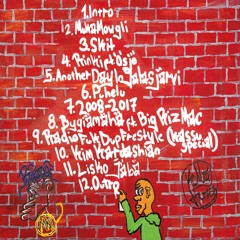 1. Intro
2. MukaMougli
3. Skit
4. Rinki ft Osjo
5. Another Day In Jalasjärvi
6. Pehelu
7. 2009-2017
8. Bygiamaha ft. Big Riz Mac
9. Radio Fuk Duo Freestyle (Kassu
Special)
10. Kim Kardashian
11. Lisko Jaba
12. Outro